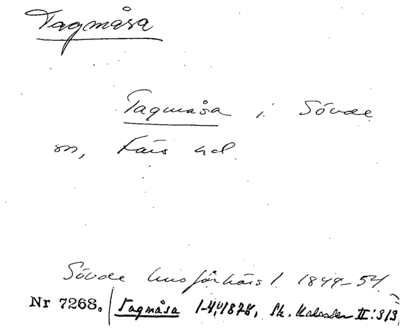 Tagmåsa
Tagmåsa i Sövde
sn, Färs hd.
Sövde husförhörsl. 1849-54
Nr 7268. Tagmåsa 1-4, 1878, Sk. Kalender II: 313